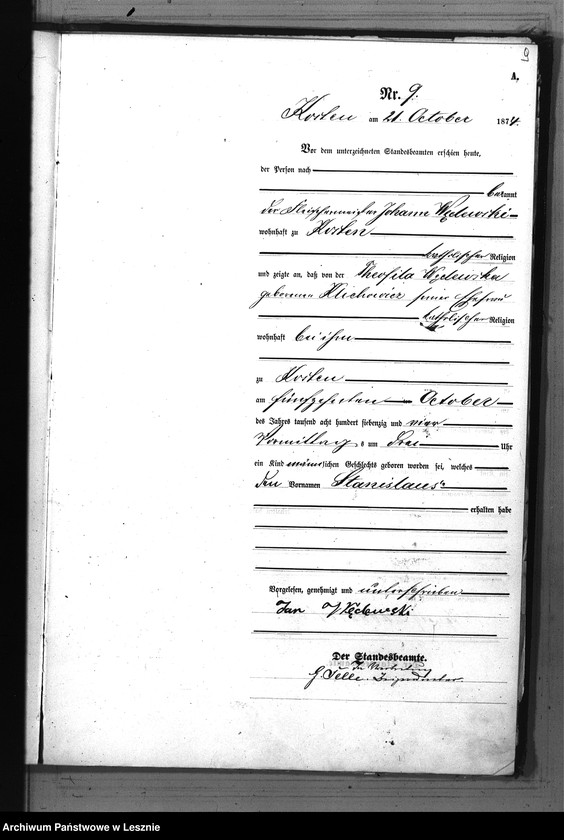 A.
Nr. 9.
Kosten am 21. October 1874.
Vor dem unterzeichneten Standesbeamten erschien heute,
der Person nach
bekannt
der Fleischermeister Johann Węclewski
wohnhaft zu Kosten
katholischer Religion
und zeigte an, daß von der Theofila Węclewska
geborenen Klichowicz seiner Ehefrau
katholischer Religion
wohnhaft bei ihm
zu Kosten
am fünfzehnten October
des Jahres tausend acht hundert siebenzig und vier
Vormittag s um drei Uhr
ein Kind männlichen Geschlechts geboren worden sei, welches
den Vornamen Stanislaus
erhalten habe
Vorgelesen, genehmigt und unterschrieben
Jan Węclewski
Der Standesbeamte.
In Vertretung
G. Selle
Archiwum Państwowe w Lesznie